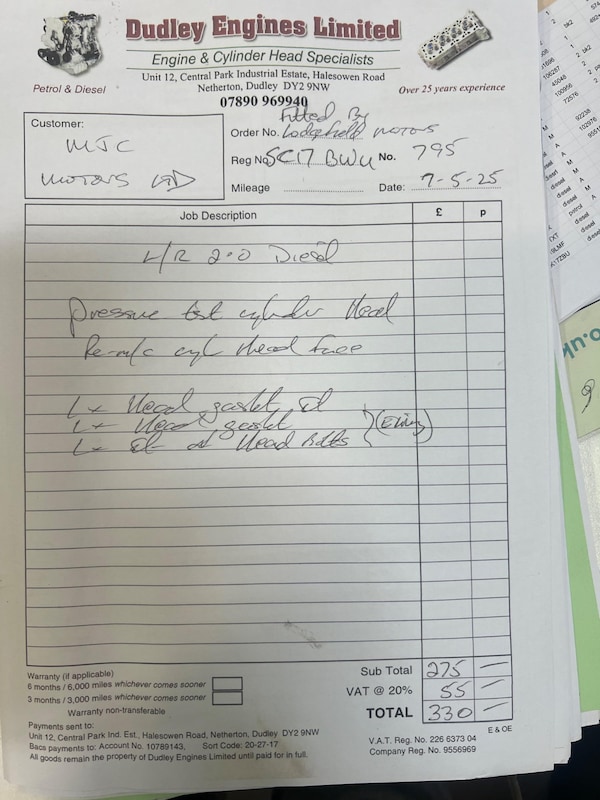 Dudley Engines Limited
Engine & Cylinder Head Specialists
Petrol & Diesel
Unit 12, Central Park Industrial Estate, Halesowen Road
Netherton, Dudley DY2 9NW
Over 25 years experience
07890 969940
Fitted By
Customer:
MJC
MOTORS LTD
Order No. Lodgefield MOTORS
Reg No. SC17 BWU No. 795
Mileage Date: 7-5-25
Job Description £ p
L/R 2.0 Diesel
Pressure test cylinder Head
Re-m/c cyl Head Face
1 x Head gasket set
1 x Head gasket
1 x set of Head Bolts
(Elring)
Warranty (if applicable)
6 months / 6,000 miles whichever comes sooner
3 months / 3,000 miles whichever comes sooner
Warranty non-transferable
Sub Total 275 —
VAT @ 20% 55 —
TOTAL 330 —
E & OE
Payments sent to:
Unit 12, Central Park Ind. Est., Halesowen Road, Netherton, Dudley DY2 9NW
Bacs payments to: Account No. 10789143, Sort Code: 20-27-17
All goods remain the property of Dudley Engines Limited until paid for in full.
V.A.T. Reg. No. 226 6373 04
Company Reg. No. 9556969